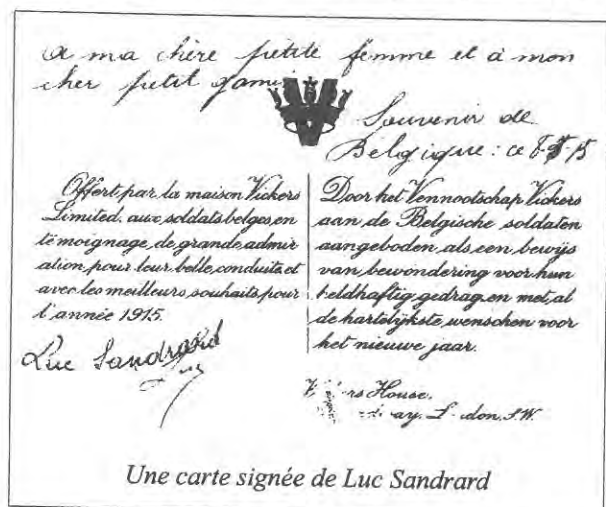 A ma chère petite femme et à mon
cher petit gamin
Souvenir de
Belgique: ce
Offert par la maison Vickers
Limited, aux soldats belges, en
témoignage, de grande admir
ation, pour leur belle conduite et
avec les meilleurs souhaits pour
l'année 1915.
Luc Sandrard
Door het Vennootschap Vickers
aan de Belgische soldaten
aangeboden als een bewijs
van bewondering voor hun
heldhaftig gedrag en met al
de hartelijkste wenschen voor
het nieuwe jaar.
House.
S.W.
Une carte signée de Luc Sandrard